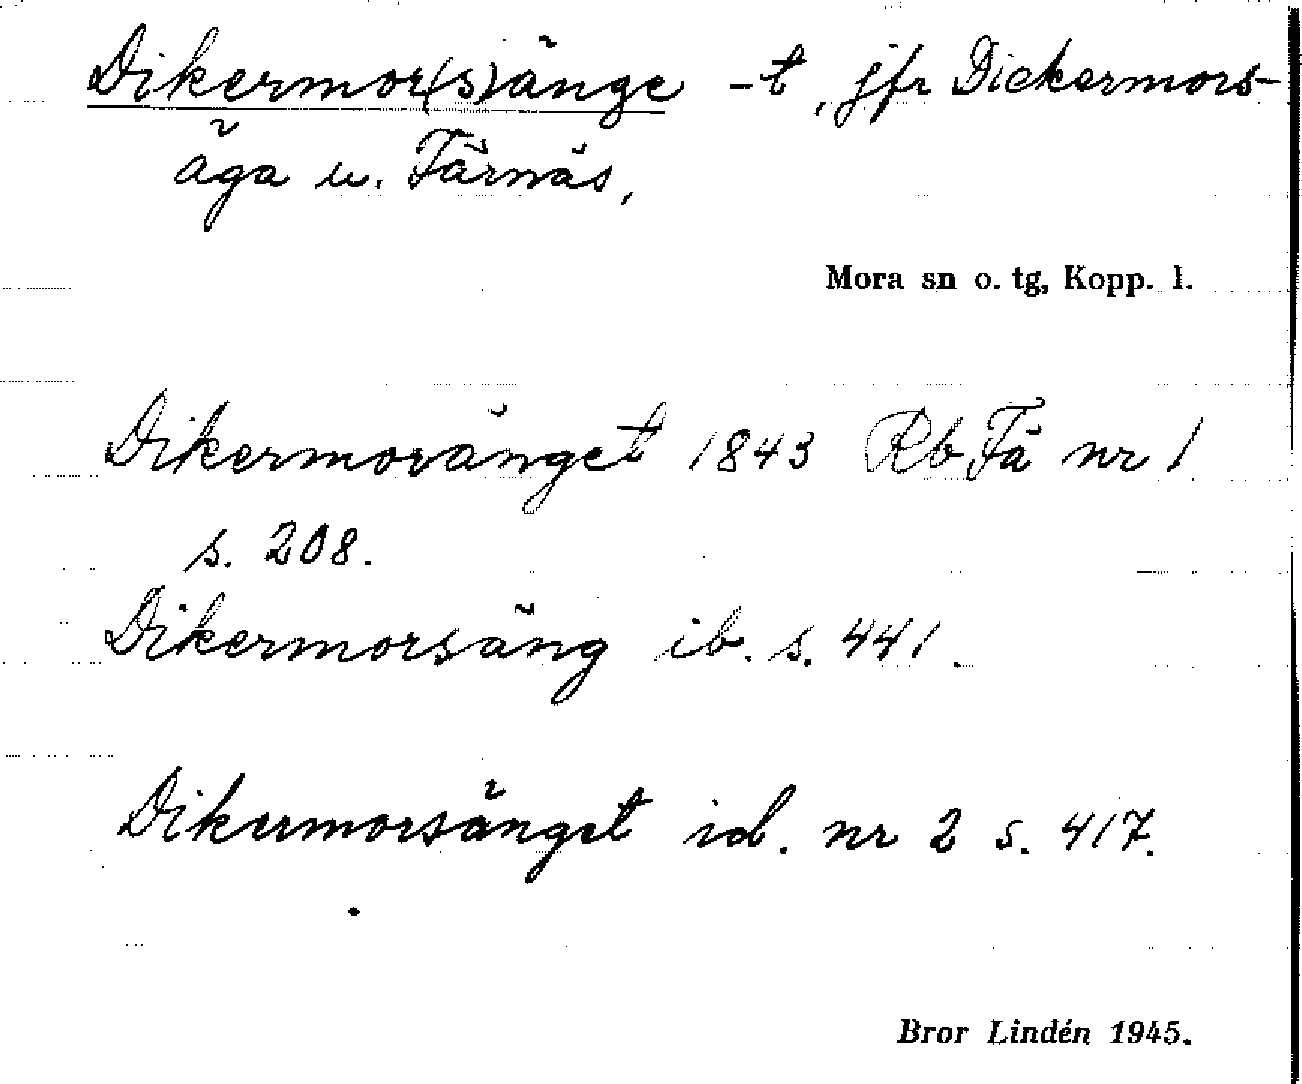 Dikermor(s)änge -t, jfr Dickermors-
äga u. Färnäs,
Mora sn o. tg, Kopp. l.
Dikermoränget 1843 Rb Fä nr 1
s. 208.
Dikermorsäng ib. s. 441.
Dikermorsänget id. nr 2 s. 417.
Bror Lindén 1945.